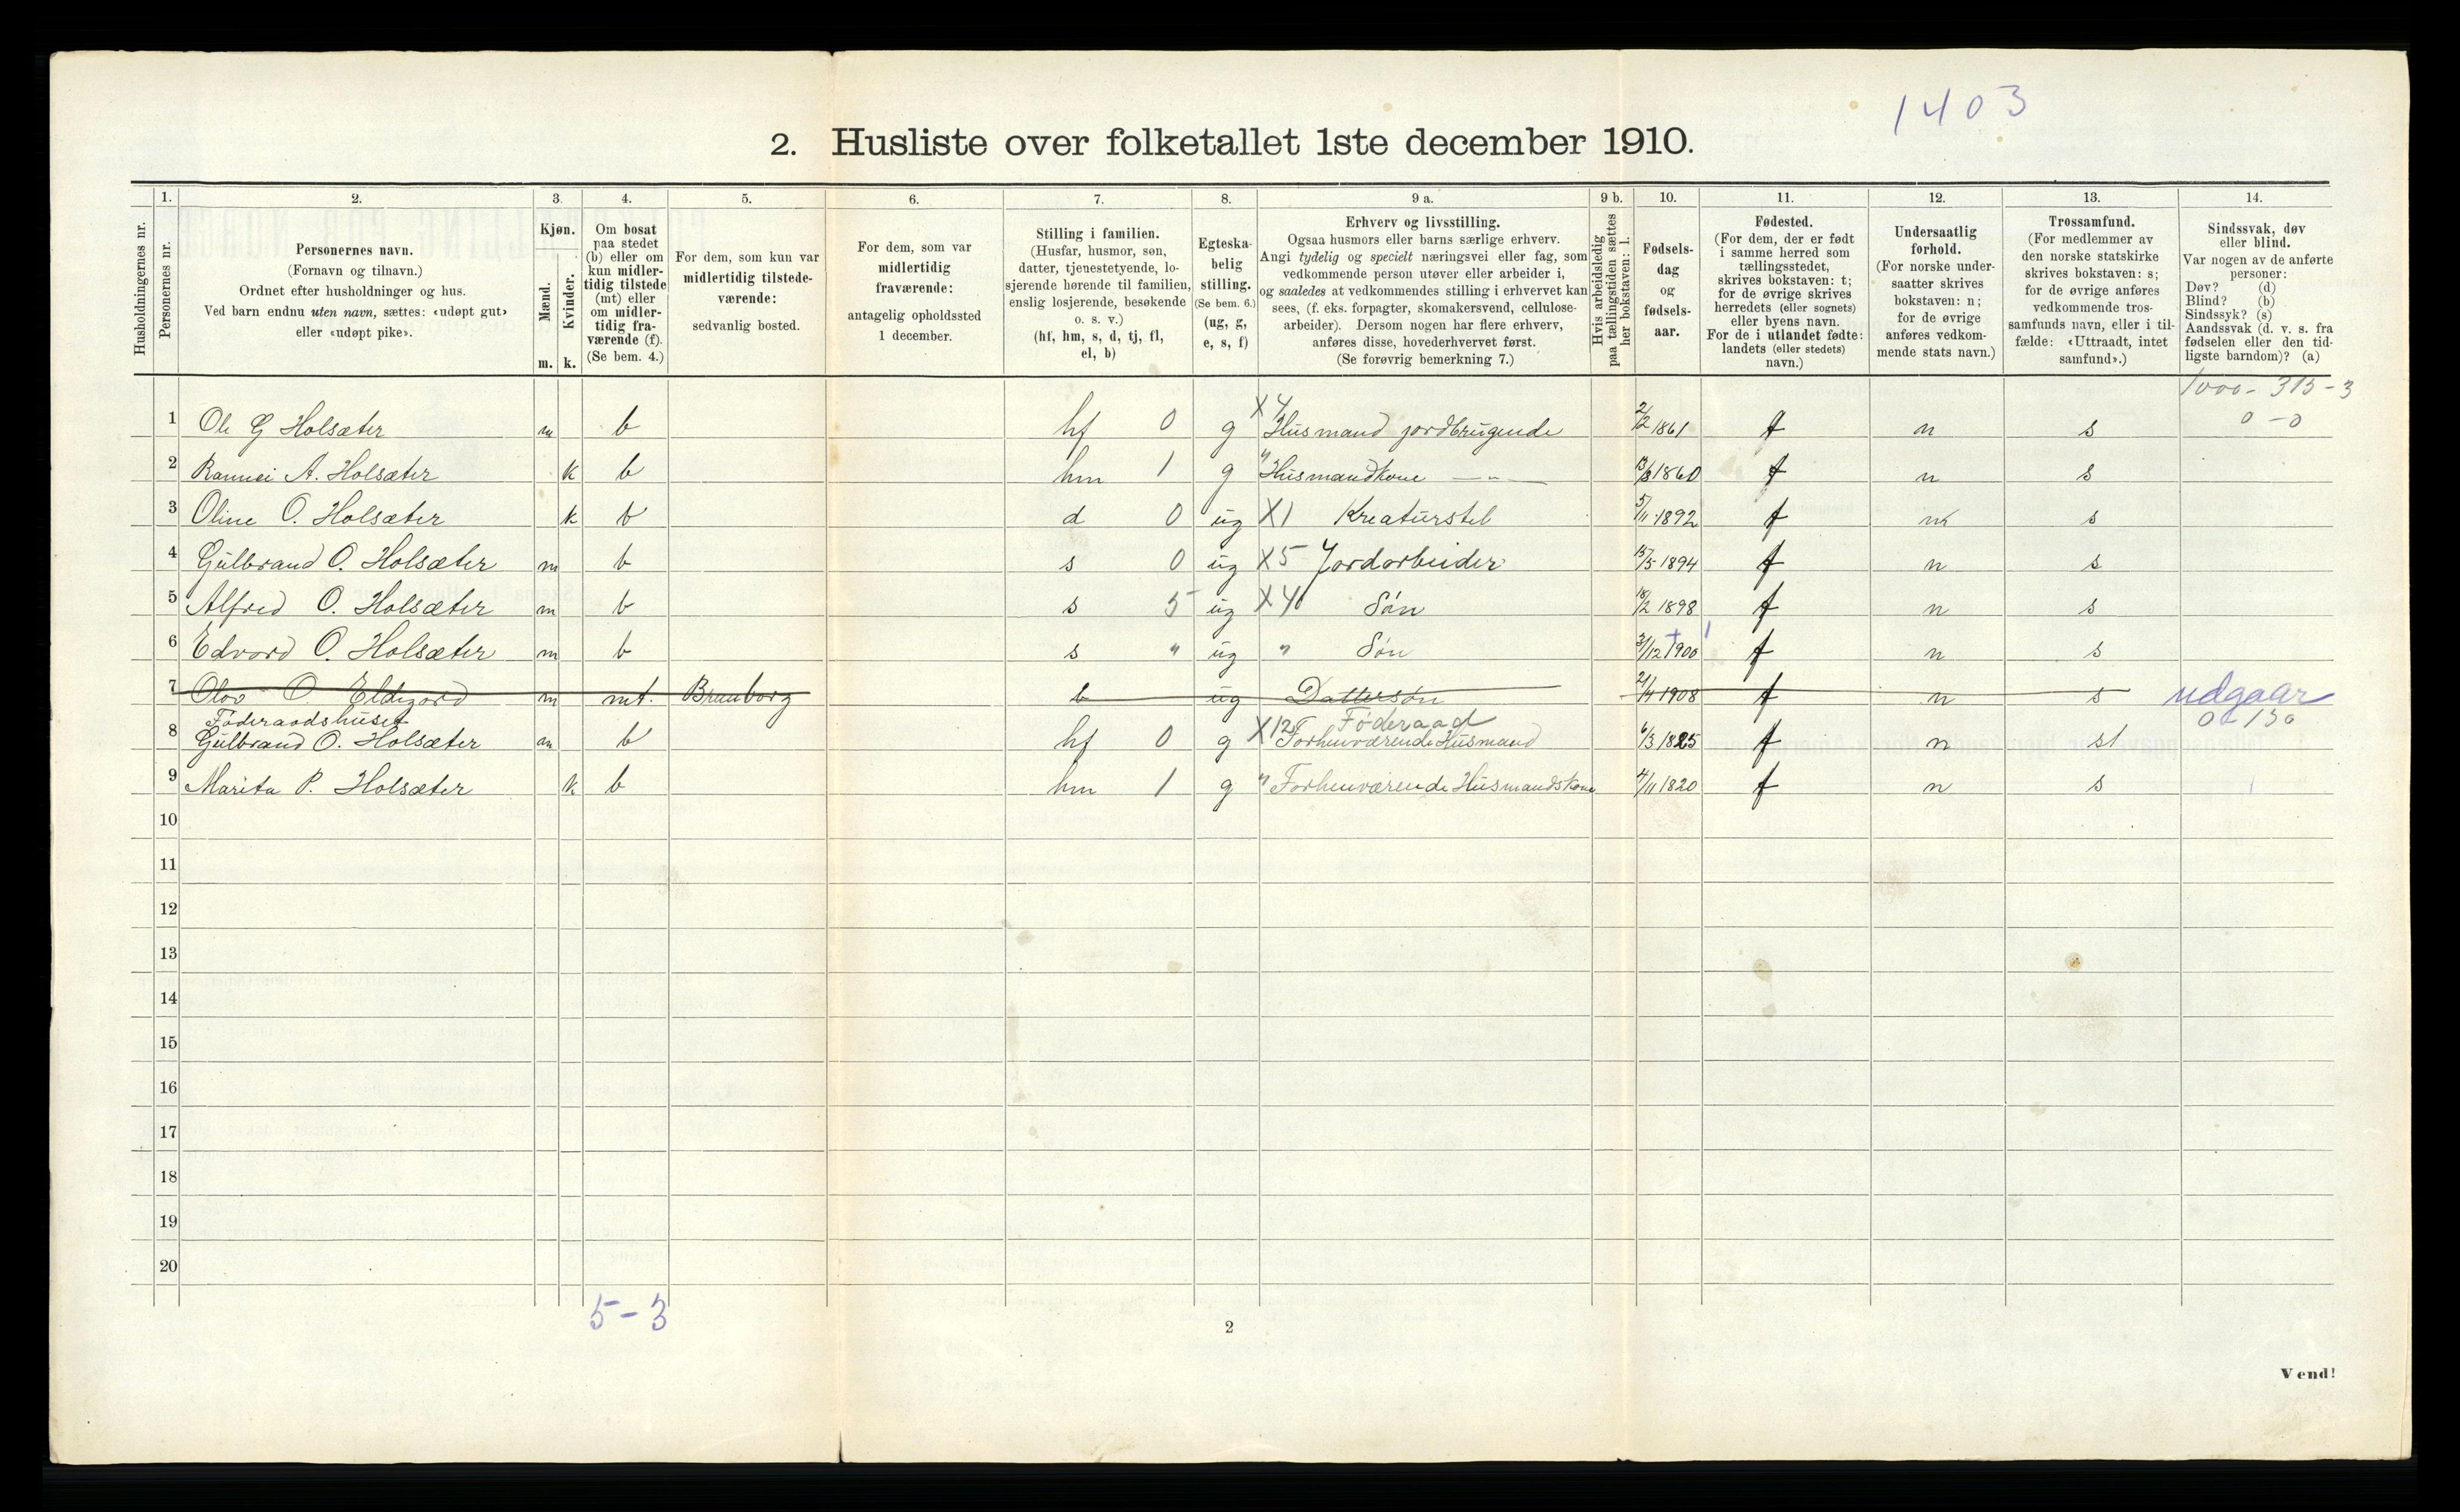 1403
2. Husliste over folketallet 1ste december 1910.
Husholdningernes nr.
1.
Personernes nr.
2.
Personernes navn.
(Fornavn og tilnavn.)
Ordnet efter husholdninger og hus.
Ved barn endnu uten navn, sættes: «udøpt gut»
eller «udøpt pike».
3.
Kjøn.
Mænd.
Kvinder.
m. k.
4.
Om bosat
paa stedet
(b) eller om
kun midler-
tidig tilstede
(mt) eller
om midler-
tidig fra-
værende (f).
(Se bem. 4.)
5.
For dem, som kun var
midlertidig tilstede-
værende:
sedvanlig bosted.
6.
For dem, som var
midlertidig
fraværende:
antagelig opholdssted
1 december.
7.
Stilling i familien.
(Husfar, husmor, søn,
datter, tjenestetyende, lo-
sjerende hørende til familien,
enslig losjerende, besøkende
o. s. v.)
(hf, hm, s, d, tj, fl,
el, b)
8.
Egteska-
belig
stilling.
(Se bem. 6.)
(ug, g,
e, s, f)
9 a.
Erhverv og livsstilling.
Ogsaa husmors eller barns særlige erhverv.
Angi tydelig og specielt næringsvei eller fag, som
vedkommende person utøver eller arbeider i,
og saaledes at vedkommendes stilling i erhvervet kan
sees, (f. eks. forpagter, skomakersvend, cellulose-
arbeider). Dersom nogen har flere erhverv,
anføres disse, hovederhvervet først.
(Se forøvrig bemerkning 7.)
9 b.
Hvis arbeidsledig
paa tællingstiden sættes
her bokstaven: l.
10.
Fødsels-
dag
og
fødsels-
aar.
11.
Fødested.
(For dem, der er født
i samme herred som
tællingsstedet,
skrives bokstaven: t;
for de øvrige skrives
herredets (eller sognets)
eller byens navn.
For de i utlandet fødte:
landets (eller stedets)
navn.)
12.
Undersaatlig
forhold.
(For norske under-
saatter skrives
bokstaven: n;
for de øvrige
anføres vedkom-
mende stats navn.)
13.
Trossamfund.
(For medlemmer av
den norske statskirke
skrives bokstaven: s;
for de øvrige anføres
vedkommende tros-
samfunds navn, eller i til-
fælde: «Uttraadt, intet
samfund».)
14.
Sindssvak, døv
eller blind.
Var nogen av de anførte
personer:
Døv? (d)
Blind? (b)
Sindssyk? (s)
Aandssvak (d. v. s. fra
fødselen eller den tid-
ligste barndom)? (a)
1000 - 315 - 3
0 - 0
1 Ole G Holsæter m b hf 0 g X4 Husmand jordbrugende 2/2 1861 t n s
2 Rannei A. Holsæter k b hm 1 g " Husmandkone —"— 1860 t n s
3 Oline O. Holsæter k b d 0 ug X1 Kreaturstel 5/11 1892 t n s
4 Gulbrand O. Holsæter m b s 0 ug X5 Jordarbeider 15/5 1894 t n s
5 Alfred O. Holsæter m b s 5 ug X4 Søn 18/2 1898 t n s
6 Edvard O. Holsæter m b s " ug " Søn 3/12 1900 t n s
7 Olav O. Eldegard m mt. Brenborg b ug Dattersøn 21/4 1908 t n s udgaar
Føderaadshuset
Føderaad
0 - 150
8 Gulbrand O. Holsæter m b hf 0 g X12 Forhenværende Husmand 6/3 1825 t n s
9 Marita P. Holsæter k b hm 1 g " Forhenværende Husmandskone 4/11 1820 t n s
10
11
12
13
14
15
16
17
18
19
20
5 - 3
2
Vend!